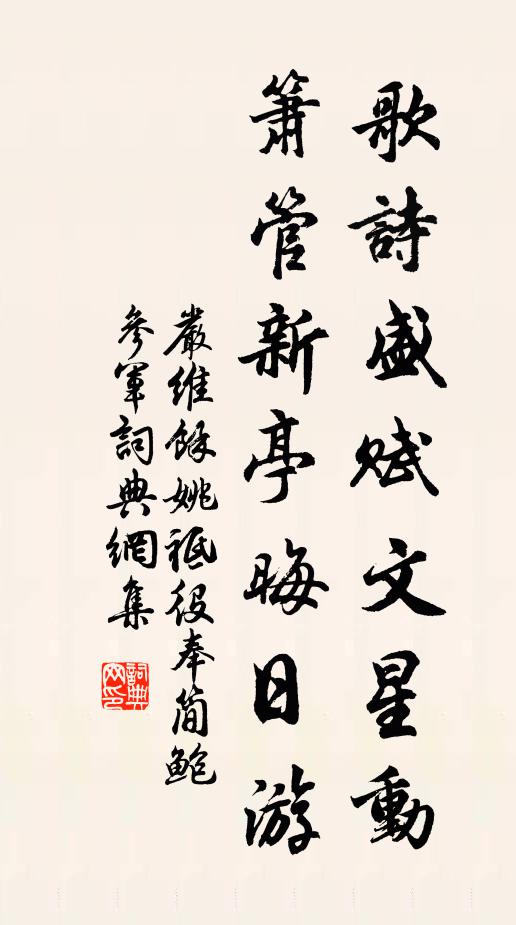 歌詩盛賦文星動
簫管新亭晦日游
嚴維餘姚祗役奉簡鮑
參軍詞典網集
詞典
网印